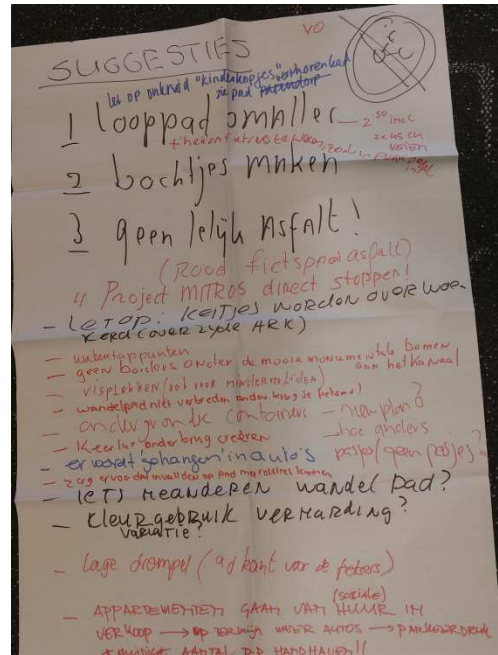 VO
SUGGESTIES
let op onkruid "kinderkopjes"
zie pad
1 looppad smaller 2.50 incl
2 bochtjes maken
3 geen lelijk Asfalt!
(Rood fietspad asfalt)
4 Project MITROS direct stoppen!
- LET OP: KEITJES WORDEN OVERWOE-
KERD (OVERZYDE ARK)
- watertappunten
- geen borders onder de mooie monumentale bomen
aan het kanaal
- visplekken (ook voor mindervaliden)
- wandelpad niet verbreden onder brug
- ondergrondse containers - nieuw plan?
- hoe anders
- Keerlus onder brug creëren
pasjes (geen pasjes?
- er wordt 'gehangen' in auto's
- zorg ervoor dat invaliden op pad met rolstoel kunnen
- IETS MEANDEREN WANDELPAD?
- KLEURGEBRUIK VERHARDING?
VARIATIE?
- Lage drempel (ad kant van de fietsers)
(sociale)
- APPARTEMENTEN GAAN VAN HUUR IN
VERKOOP → OP TERMIJN MEER AUTOS → PARKEERDRUK
* HUIDIGE AANTAL PP HANDHAVEN!!